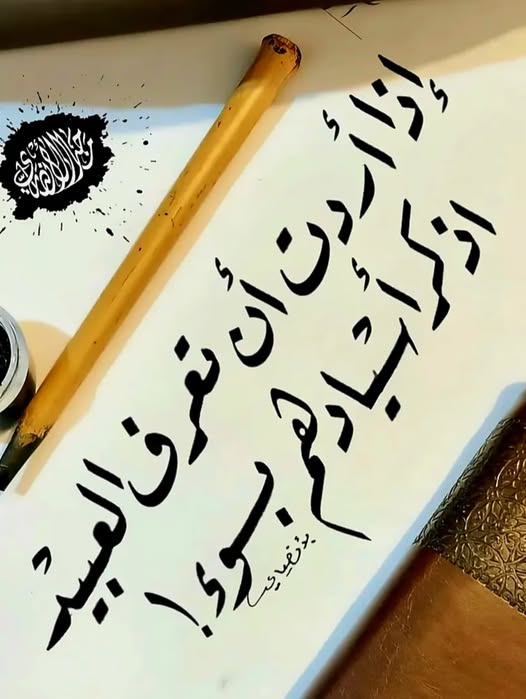 إذا أردت أن تعرف العبيد
اذكر أسيادهم بسوء !